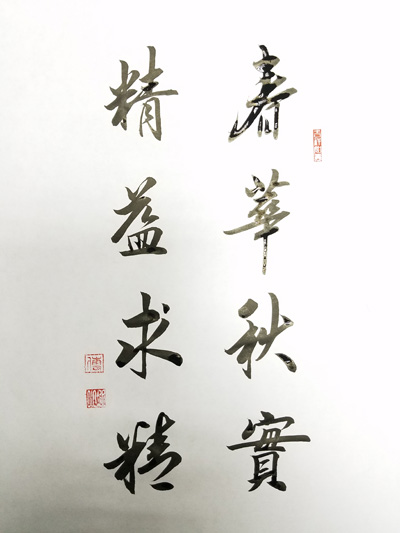 春華秋實
精益求精